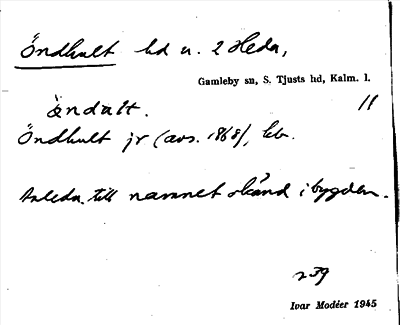 Öndhult hd u. 2 Heda,
Gamleby sn, S. Tjusts hd, Kalm. l.
ändult. 11
Öndhult jr (avs. 1868), leb.
Anledn. till namnet okänd i bygden.
239
Ivar Modéer 1945